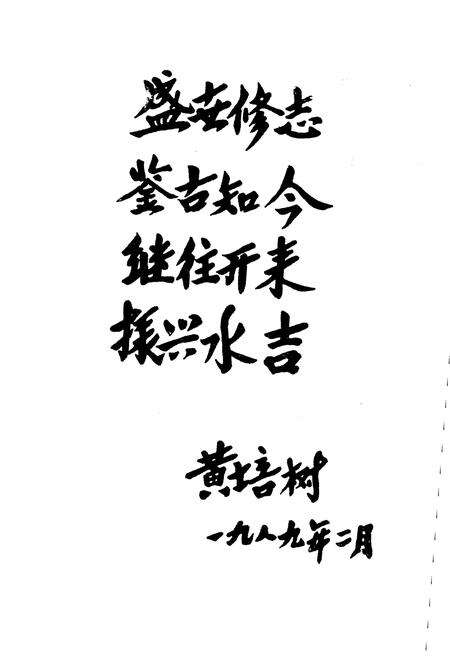 盛世修志
鉴古知今
继往开来
振兴水吉
黄培树
一九八九年二月